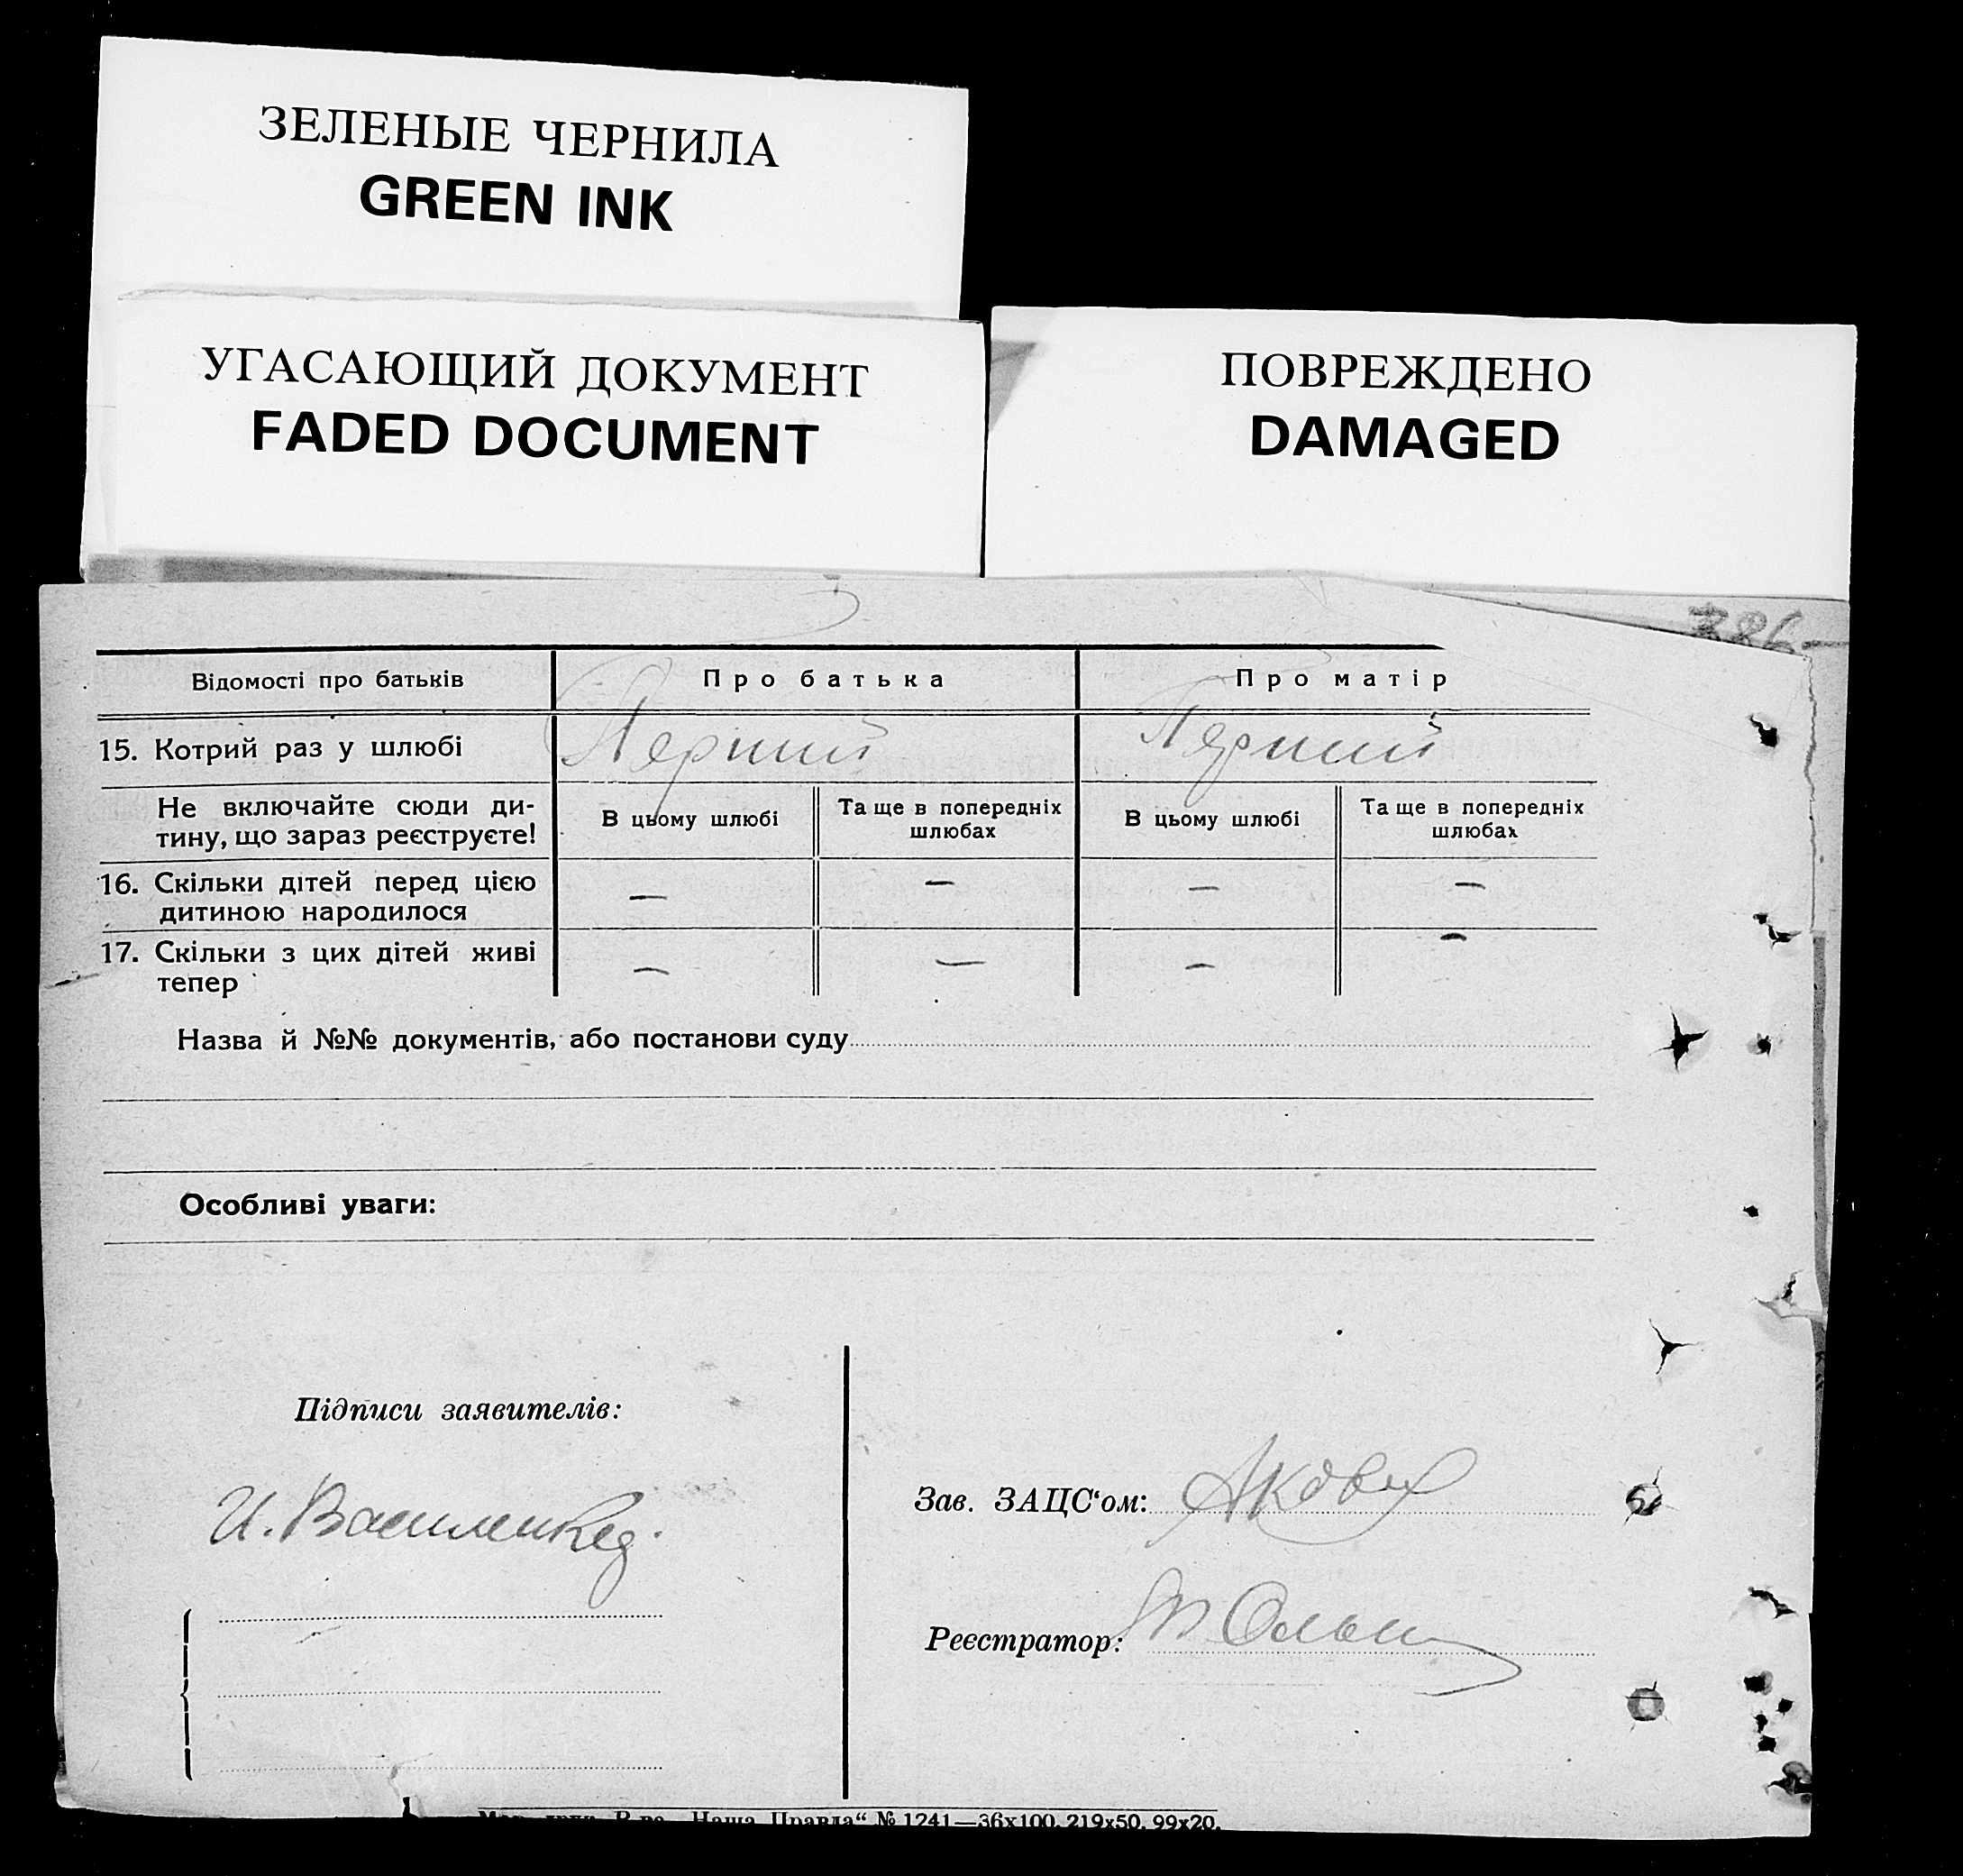 ЗЕЛЕНЫЕ ЧЕРНИЛА
GREEN INK
УГАСАЮЩИЙ ДОКУМЕНТ
FADED DOCUMENT
ПОВРЕЖДЕНО
DAMAGED
386
Відомості про батьків Про батька Про матір
15. Котрий раз у шлюбі Перший Перший
Не включайте сюди ди-
тину, що зараз реєструєте!
В цьому шлюбі
Та ще в попередніх
шлюбах
В цьому шлюбі
Та ще в попередніх
шлюбах
16. Скільки дітей перед цією
дитиною народилося
— — — —
17. Скільки з цих дітей живі
тепер
— — — —
Назва й №№ документів, або постанови суду
Особливі уваги:
Підписи заявителів:
И. Василенко
Зав. ЗАЦС‘ом:
Реєстратор:
Наша Правда“ № 1241—36х100. 219х50. 99х20.